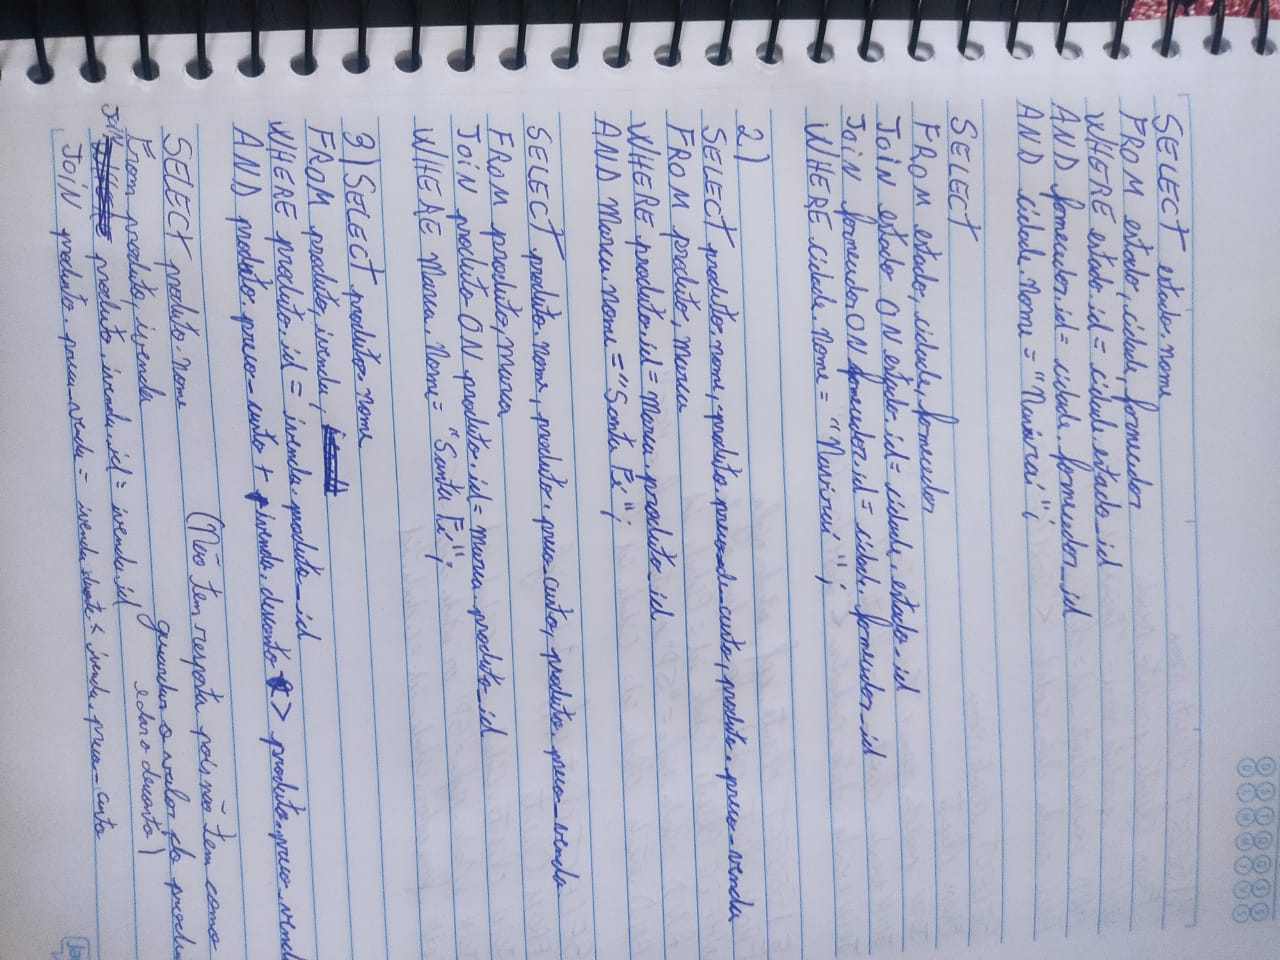 SELECT estado.nome
FROM estado, cidade, fornecedor
WHERE estado.id = cidade.estado_id
AND fornecedor.id = cidade.fornecedor_id
AND cidade.nome = "Naviraí";
SELECT
FROM estado, cidade, fornecedor
JoiN estado ON estado.id = cidade.estado_id
JoiN fornecedor ON fornecedor.id = cidade.fornecedor_id
WHERE cidade.nome = "Naviraí";
2)
SELECT produto.nome, produto.preco_de_custo, produto.preco_venda
FROM produto, marca
WHERE produto.id = marca.produto_id
AND marca.nome = "Santa Fé";
SELECT produto.nome, produto.preco_custo, produto.preco_venda
FROM produto, marca
JoiN produto ON produto.id = marca.produto_id
WHERE marca.nome = "Santa Fé";
3) SELECT produto.nome
FROM produto, ivenda,
WHERE produto.id = ivenda.produto_id
AND produto.preco_custo + ivenda.desconto > produto.preco_venda
(Não tem resposta pois não tem como
SELECT produto.nome
guardar o valor do produto
From produto, ivenda
e do desconto)
JoiN produto.ivenda.id = ivenda.id
JoiN produto.preco_venda = ivenda < ivenda.preco_custo